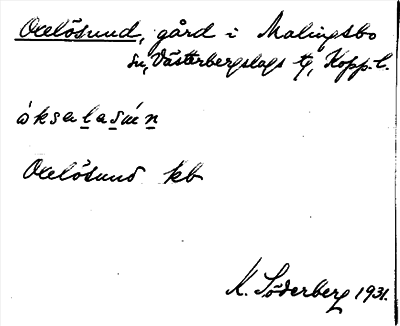 Oxelösund, gård i Malingsbo
sn, Västerbergslags tg, Kopp. l.
òksalasún
Oxelösund kb
K. Söderberg 1931.